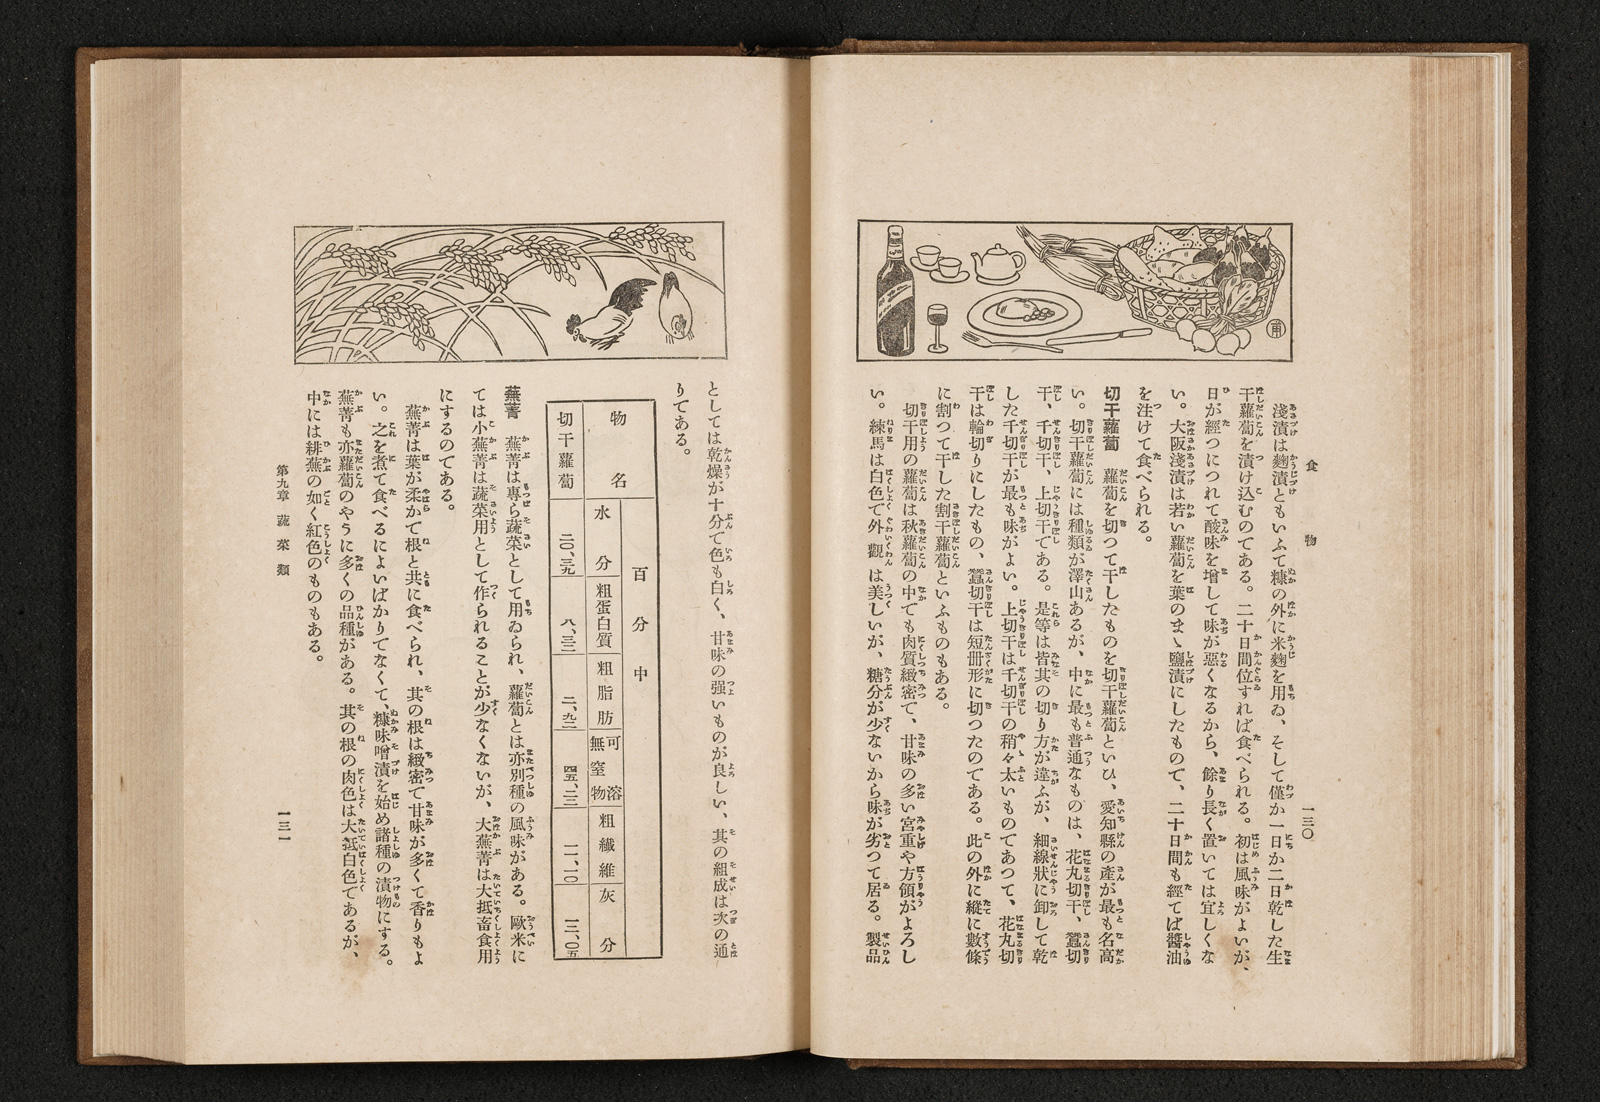 食物
一三〇
淺漬は麴漬ともいふて糠の外に米麴を用ゐ、そして僅か一日か二日乾した生
干蘿蔔を漬け込むのである。二十日間位すれば食べられる。初は風味がよいが、
日が經つにつれて酸味を增して味が惡くなるから、餘り長く置いては宜しくな
い。大阪淺漬は若い蘿蔔を葉のまゝ鹽漬にしたもので、二十日間も經てば醬油
を注けて食べられる。
切干蘿蔔 蘿蔔を切つて干したものを切干蘿蔔といひ、愛知縣の產が最も名高
い。切干蘿蔔には種類が澤山あるが、中に最も普通なものは、花丸切干、蠶切
干、千切干、上切干である。是等は皆其の切り方が違ふが、細線狀に卸して乾
した千切干が最も味がよい。上切干は千切干の稍々太いものであつて、花丸切
干は輪切りにしたもの、蠶切干は短册形に切つたのである。此の外に縱に數條
に割つて干した割干蘿蔔といふものもある。
切干用の蘿蔔は秋蘿蔔の中でも肉質緻密で、甘味の多い宮重や方領がよろし
い。練馬は白色で外觀は美しいが、糖分が少ないから味が劣つて居る。製品
としては乾燥が十分で色も白く、甘味の强いものが良しい、其の組成は次の通
りである。
物名
百分中
水分
粗蛋白質
粗脂肪
可溶無窒物
粗纎維
灰分
切干蘿蔔
二〇、三九
八、三三
二、九二
四五、二三
一一、一〇
三、〇五
蕪菁 蕪菁は專ら蔬菜として用ゐられ、蘿蔔とは亦別種の風味がある。歐米に
ては小蕪菁は蔬菜用として作られることが少なくないが、大蕪菁は大抵畜食用
にするのである。
蕪菁は葉が柔かで根と共に食べられ、其の根は緻密で甘味が多くて香りもよ
い。之を煮て食べるによいばかりでなくて、糠味噌漬を始め諸種の漬物にする。
蕪菁も亦蘿蔔のやうに多くの品種がある。其の根の肉色は大抵白色であるが、
中には緋蕪の如く紅色のものもある。
第九章 蔬菜類
一三一